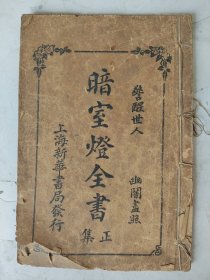 警醒世人
幽闇盡照
暗室燈全書
正集
上海新華書局發行